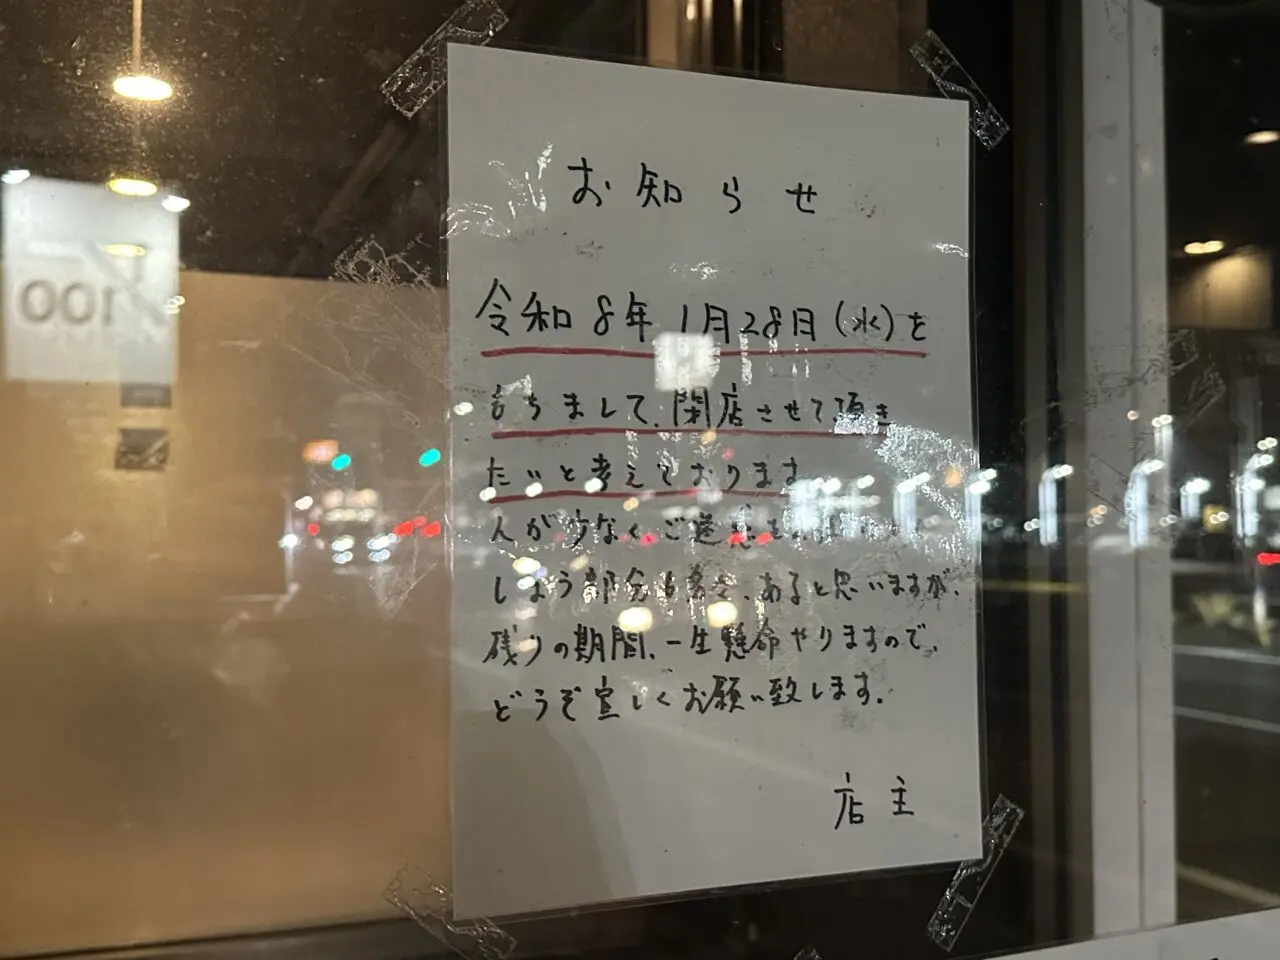 お知らせ
令和8年1月28日(水)を
もちまして、閉店させて頂き
たいと考えております
人が少なくご迷惑を
しまう部分も多々、あると思いますが、
残りの期間、一生懸命やりますので、
どうぞ宜しくお願い致します。
店主
100